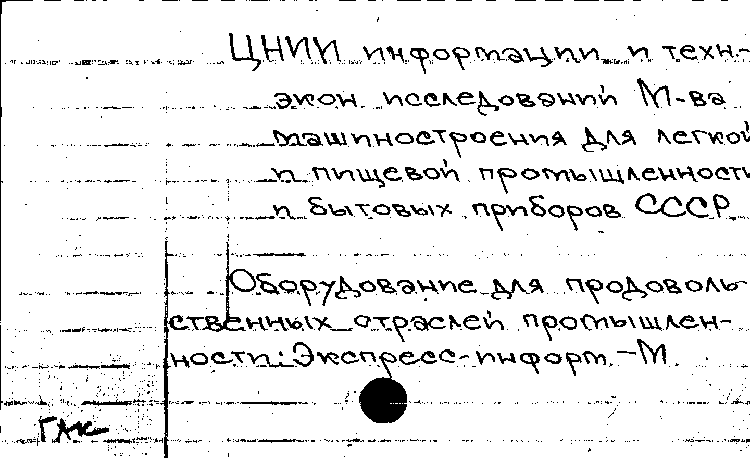 ЦНИИ информации и техн-
экон. исследований М-ва
машиностроения для легкой
и пищевой промышленности
и бытовых приборов СССР
Оборудование для продоволь-
ственных отраслей промышлен-
ности: Экспресс-информ. -М.
ГАК